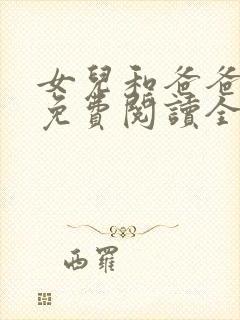 女兒和爸爸
免費閱讀全
西羅